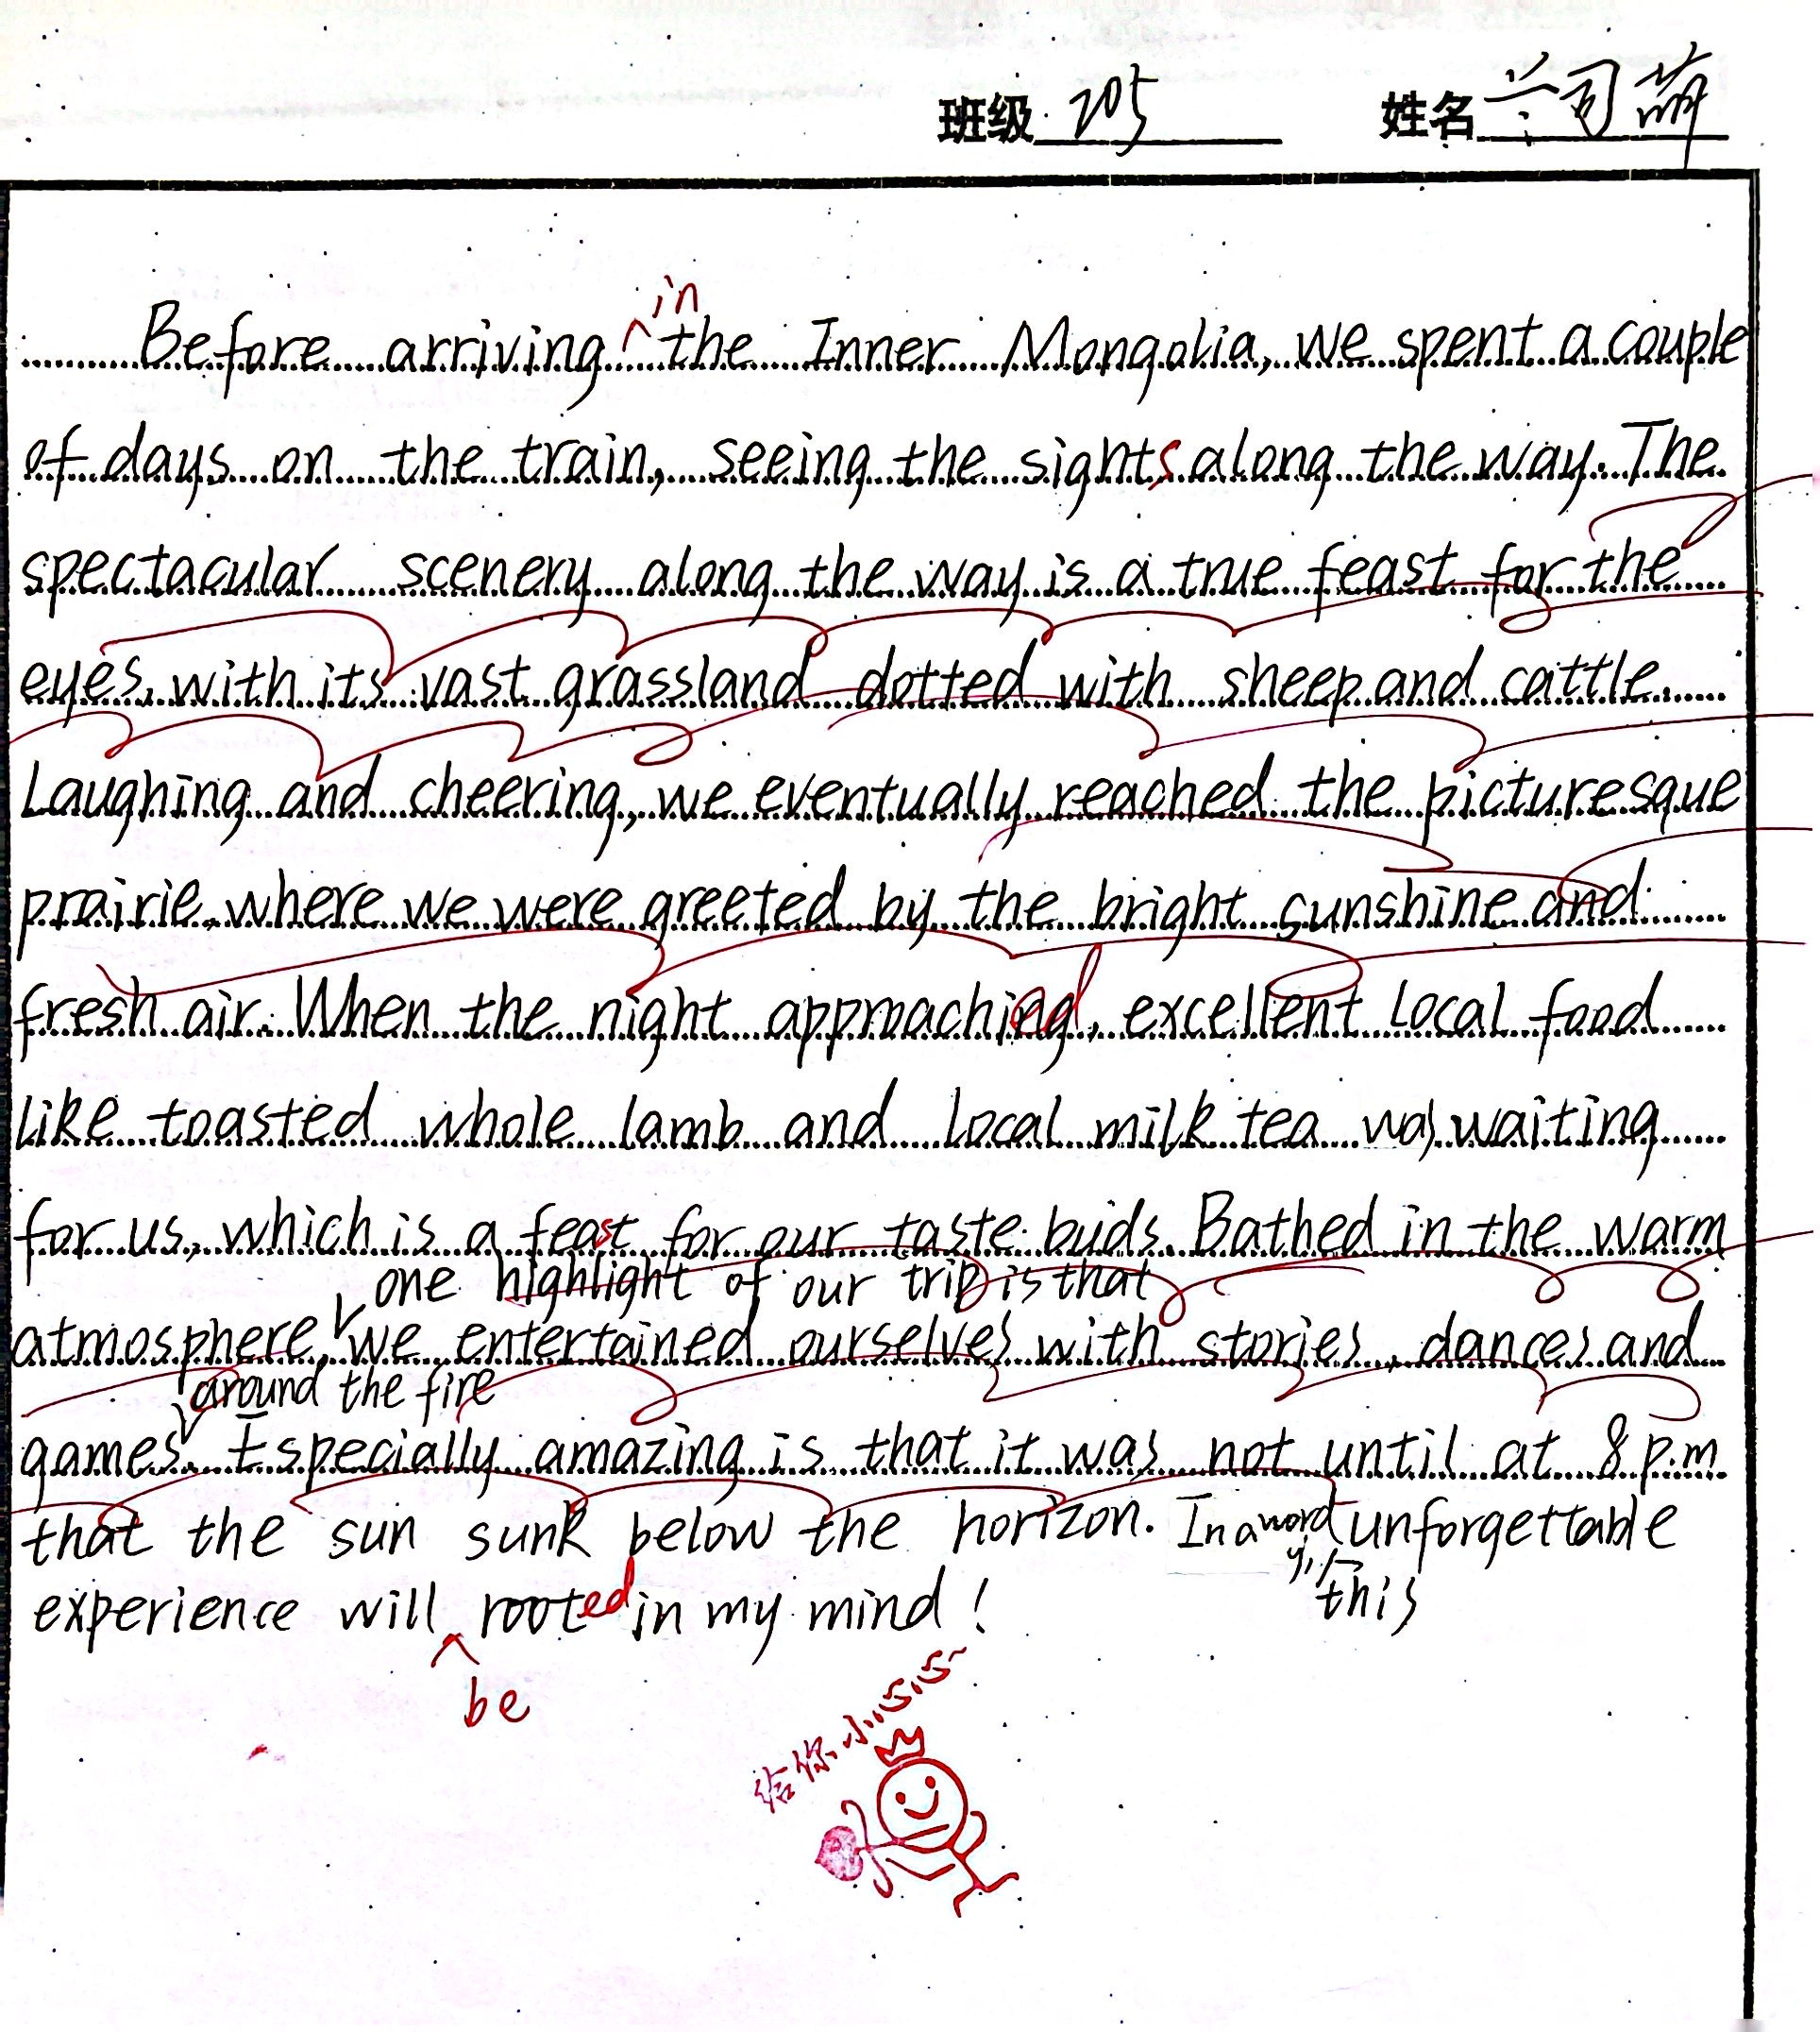 班级 205 姓名 兰司萌
in
Before arriving the Inner Mongolia, we spent a couple
of days on the train, seeing the sights along the way. The
spectacular scenery along the way is a true feast for the
eyes, with its vast grassland dotted with sheep and cattle.
Laughing and cheering, we eventually reached the picturesque
prairie, where we were greeted by the bright sunshine and
fresh air. When the night approached, excellent local food
like toasted whole lamb and local milk tea was waiting
for us, which is a feast for our taste buds. Bathed in the warm
one highlight of our trip is that
atmosphere, we entertained ourselves with stories, dances and
around the fire
games. Especially amazing is that it was not until at 8 p.m.
that the sun sunk below the horizon. In a word unforgettable
this
experience will rooted in my mind!
be
给你小心心~